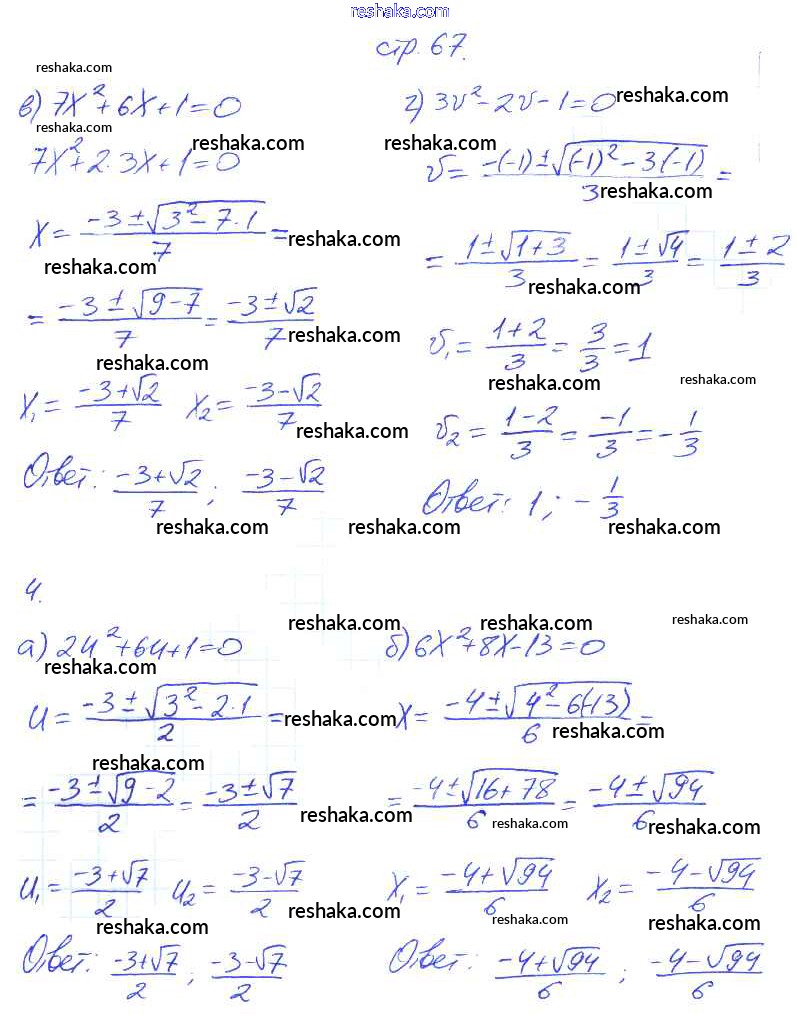 reshaka.com
стр. 67.
reshaka.com
в) 7x²+6x+1=0
reshaka.com
reshaka.com
7x²+2·3x+1=0
x = (-3±√(3²-7·1))/7 =
reshaka.com
reshaka.com
= (-3±√(9-7))/7 = (-3±√2)/7
reshaka.com
reshaka.com
x₁ = (-3+√2)/7 x₂ = (-3-√2)/7
reshaka.com
Ответ: (-3+√2)/7 ; (-3-√2)/7
reshaka.com
г) 3v²-2v-1=0
reshaka.com
reshaka.com
v = (-(-1)±√((-1)²-3(-1)))/3 =
reshaka.com
= (1±√(1+3))/3 = (1±√4)/3 = (1±2)/3
reshaka.com
v₁ = (1+2)/3 = 3/3 = 1
reshaka.com
reshaka.com
v₂ = (1-2)/3 = -1/3 = -1/3
Ответ: 1; -1/3
reshaka.com
reshaka.com
4.
reshaka.com
а) 2u²+6u+1=0
reshaka.com
u = (-3±√(3²-2·1))/2 =
reshaka.com
reshaka.com
= (-3±√(9-2))/2 = (-3±√7)/2
reshaka.com
u₁ = (-3+√7)/2 u₂ = (-3-√7)/2
reshaka.com
reshaka.com
Ответ: (-3+√7)/2 ; (-3-√7)/2
reshaka.com
reshaka.com
б) 6x²+8x-13=0
x = (-4±√(4²-6(-13)))/6 =
reshaka.com
= (-4±√(16+78))/6 = (-4±√94)/6
reshaka.com
reshaka.com
x₁ = (-4+√94)/6 x₂ = (-4-√94)/6
reshaka.com
reshaka.com
Ответ: (-4+√94)/6 ; (-4-√94)/6